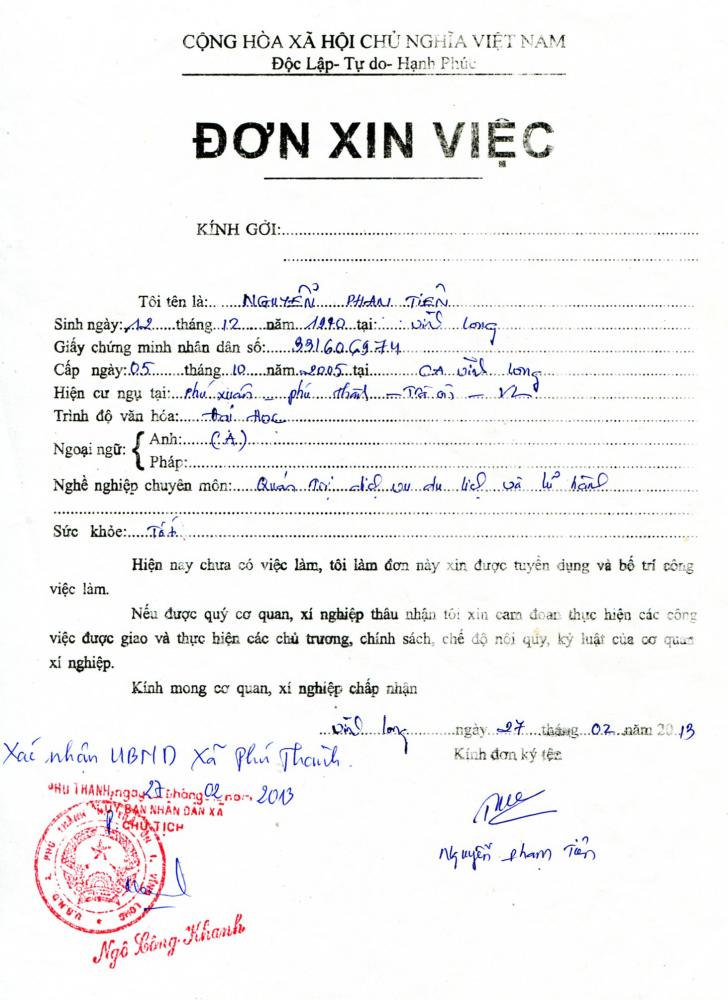 CỘNG HÒA XÃ HỘI CHỦ NGHĨA VIỆT NAM
Độc Lập- Tự do- Hạnh Phúc
ĐƠN XIN VIỆC
KÍNH GỞI:
Tôi tên là: NGUYỄN PHAN TIẾN
Sinh ngày: 12 tháng 12 năm 1990 tại: Vĩnh Long
Giấy chứng minh nhân dân số: 331606974
Cấp ngày: 05 tháng 10 năm 2005 tại CA Vĩnh Long
Hiện cư ngụ tại: Phú Xuân - Phú Thành - Trà Ôn - VL
Trình độ văn hóa: Đại Học
Ngoại ngữ:
Anh: (A)
Pháp:
Nghề nghiệp chuyên môn: Quản Trị dịch vụ du lịch và lữ hành
Sức khỏe: Tốt
Hiện nay chưa có việc làm, tôi làm đơn này xin được tuyển dụng và bố trí công
việc làm.
Nếu được quý cơ quan, xí nghiệp thâu nhận tôi xin cam đoan thực hiện các công
việc được giao và thực hiện các chủ trương, chính sách, chế độ nôi quy, kỷ luật của cơ quan
xí nghiệp.
Kính mong cơ quan, xí nghiệp chấp nhận
Vĩnh Long ngày 27 tháng 02 năm 2013
Kính đơn ký tên
Xác nhận UBND Xã Phú Thành.
PHÚ THÀNH, ngày 27 tháng 02 năm 2013
ỦY BAN NHÂN DÂN XÃ
P. CHỦ TỊCH
Nguyễn Phạm Tiến
Ngô Công Khanh